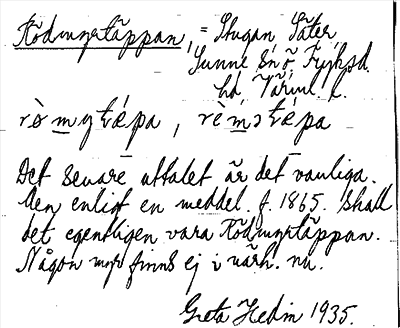 Rödmyrtäppan, = Stugan Säter,
Sunne sn ö Fryksd.
hd, Värml. l.
rø̀mytǽpa, rèmɔtǽpa
Det senare uttalet är det vanliga.
Men enligt en meddel. f. 1865. skall
det egentligen vara Rödmyrtäppan.
Någon myr finns ej i närh. nu.
Greta Hedin 1935.